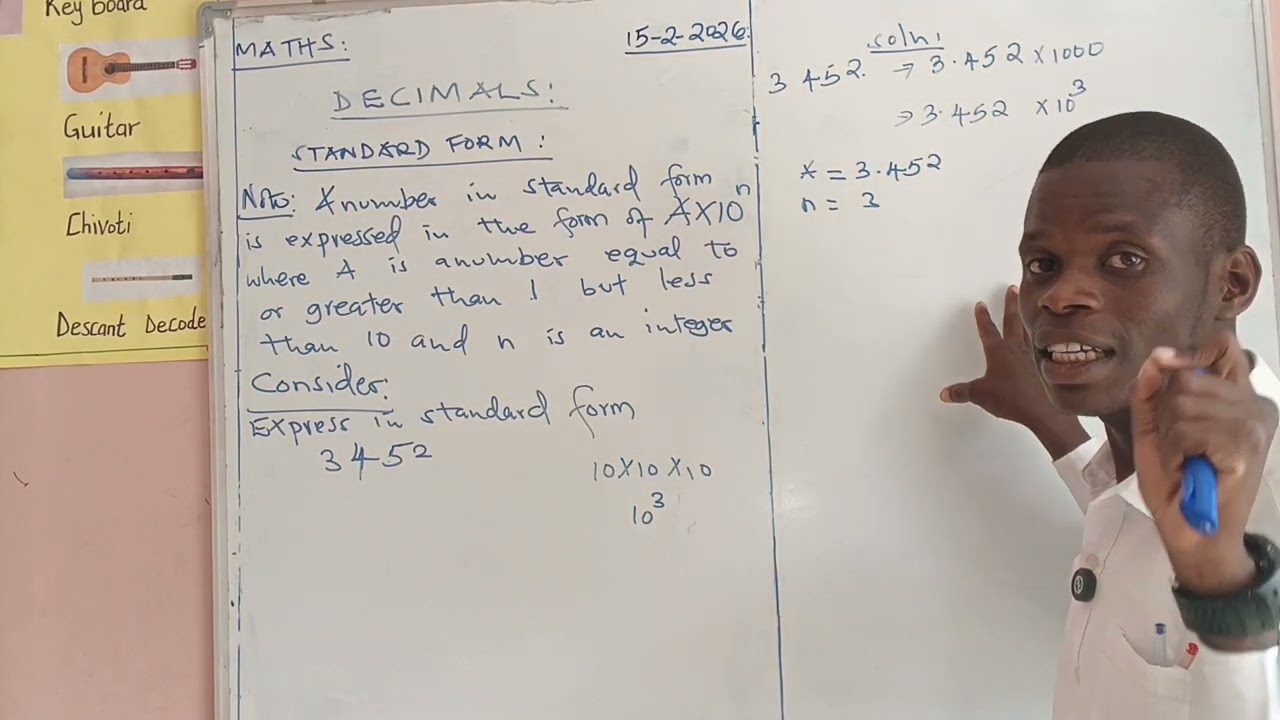 Key board
Guitar
Chivoti
Descant Decode
MATHS:
15-2-2026:
DECIMALS:
STANDARD FORM:
Note: A number in standard form
is expressed in the form of A×10ⁿ
where A is a number equal to
or greater than 1 but less
than 10 and n is an integer
Consider:
Express in standard form
3452
10×10×10
10³
soln:
3452. → 3.452 × 1000
→ 3.452 × 10³
* = 3.452
n = 3